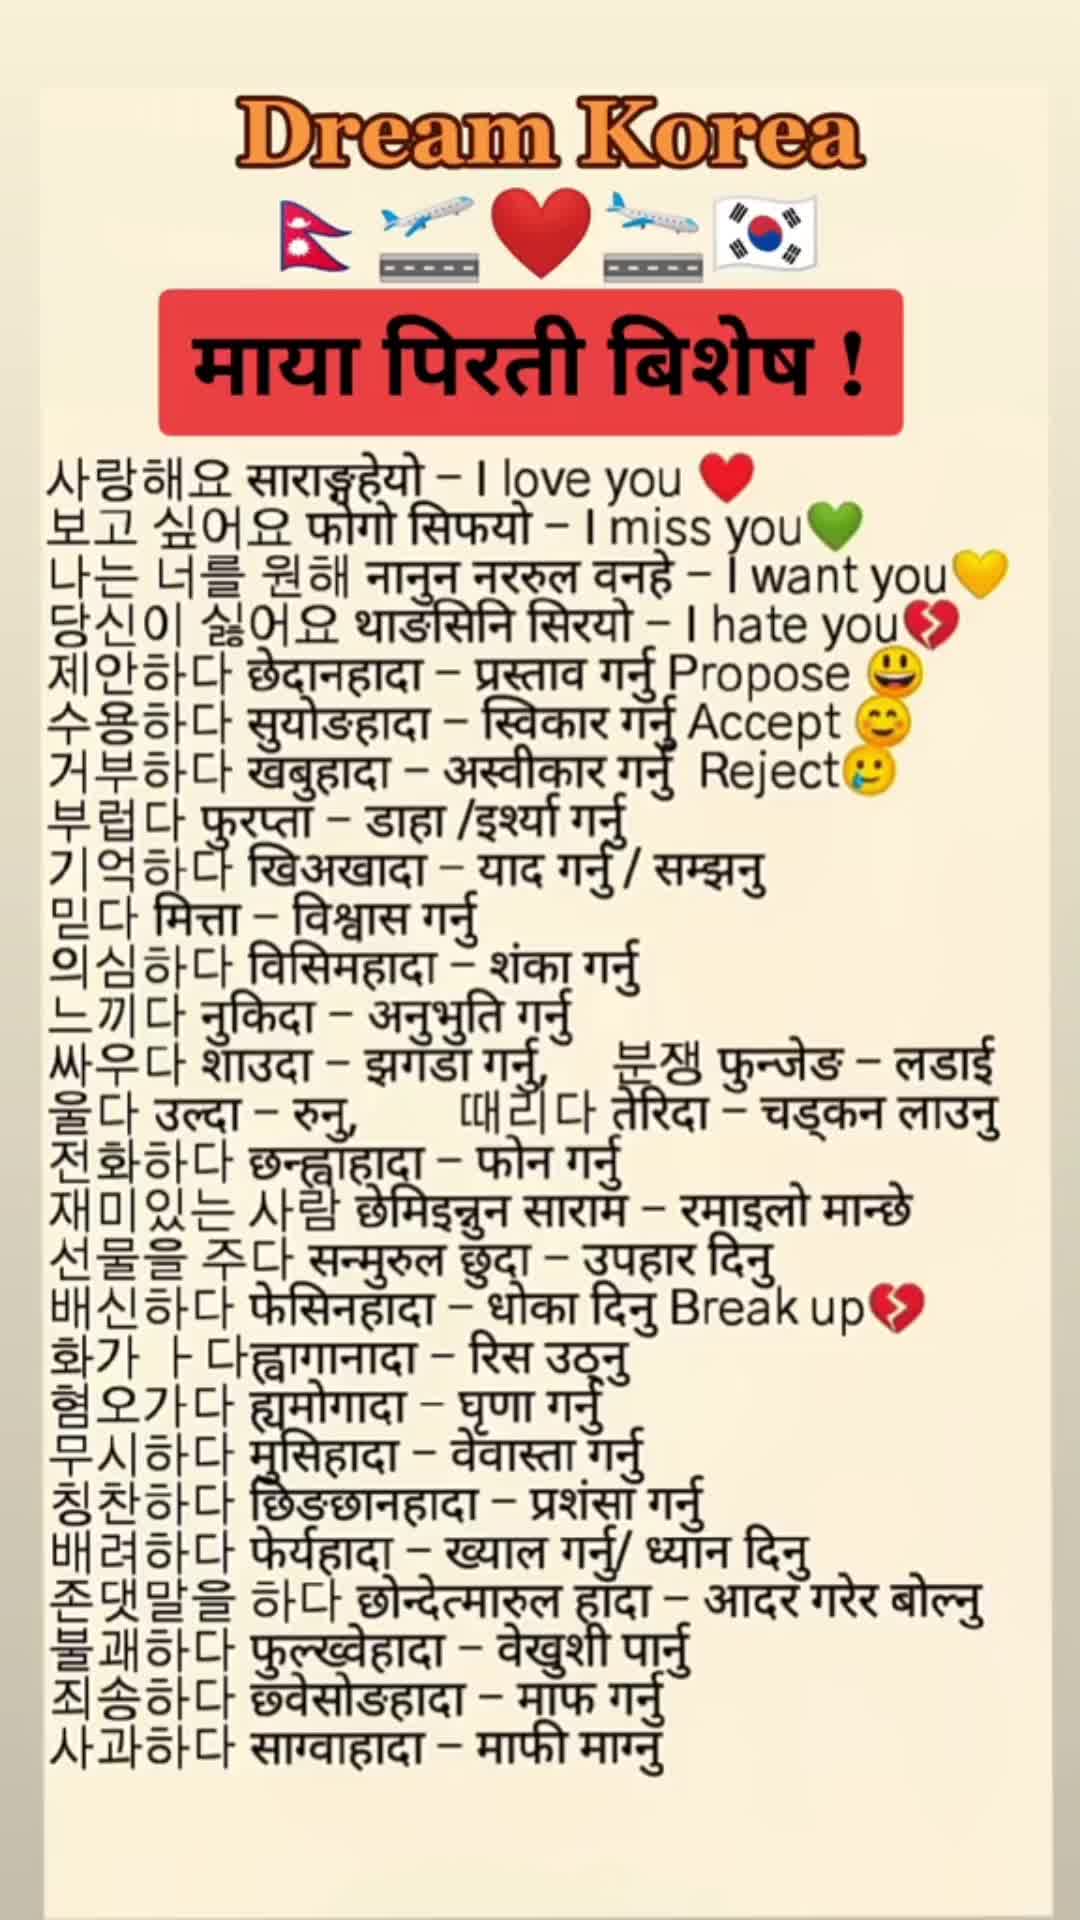 Dream Korea
माया पिरती बिशेष !
사랑해요 साराङ्हेयो – I love you
보고 싶어요 फोगो सिफयो – I miss you
나는 너를 원해 नानुन नररुल वनहे – I want you
당신이 싫어요 थाङसिनि सिरयो – I hate you
제안하다 छेदानहादा – प्रस्ताव गर्नु Propose
수용하다 सुयोङहादा – स्विकार गर्नु Accept
거부하다 खबुहादा – अस्वीकार गर्नु Reject
부럽다 फुरप्ता – डाहा /इर्श्या गर्नु
기억하다 खिअखादा – याद गर्नु / सम्झनु
믿다 मित्ता – विश्वास गर्नु
의심하다 विसिमहादा – शंका गर्नु
느끼다 नुकिदा – अनुभुति गर्नु
싸우다 शाउदा – झगडा गर्नु, 분쟁 फुन्जेङ – लडाई
울다 उल्दा – रुनु, 때리다 तेरिदा – चड्कन लाउनु
전화하다 छन्ह्वाहादा – फोन गर्नु
재미있는 사람 छेमिइन्नुन साराम – रमाइलो मान्छे
선물을 주다 सन्मुरुल छुदा – उपहार दिनु
배신하다 फेसिनहादा – धोका दिनु Break up
화가 ㅏ다ह्वागानादा – रिस उठ्नु
혐오가다 ह्यमोगादा – घृणा गर्नु
무시하다 मुसिहादा – वेवास्ता गर्नु
칭찬하다 छिङछानहादा – प्रशंसा गर्नु
배려하다 फेर्यहादा – ख्याल गर्नु/ ध्यान दिनु
존댓말을 하다 छोन्देत्मारुल हादा – आदर गरेर बोल्नु
불쾌하다 फुल्ख्वेहादा – वेखुशी पार्नु
죄송하다 छ्वेसोङहादा – माफ गर्नु
사과하다 साग्वाहादा – माफी माग्नु